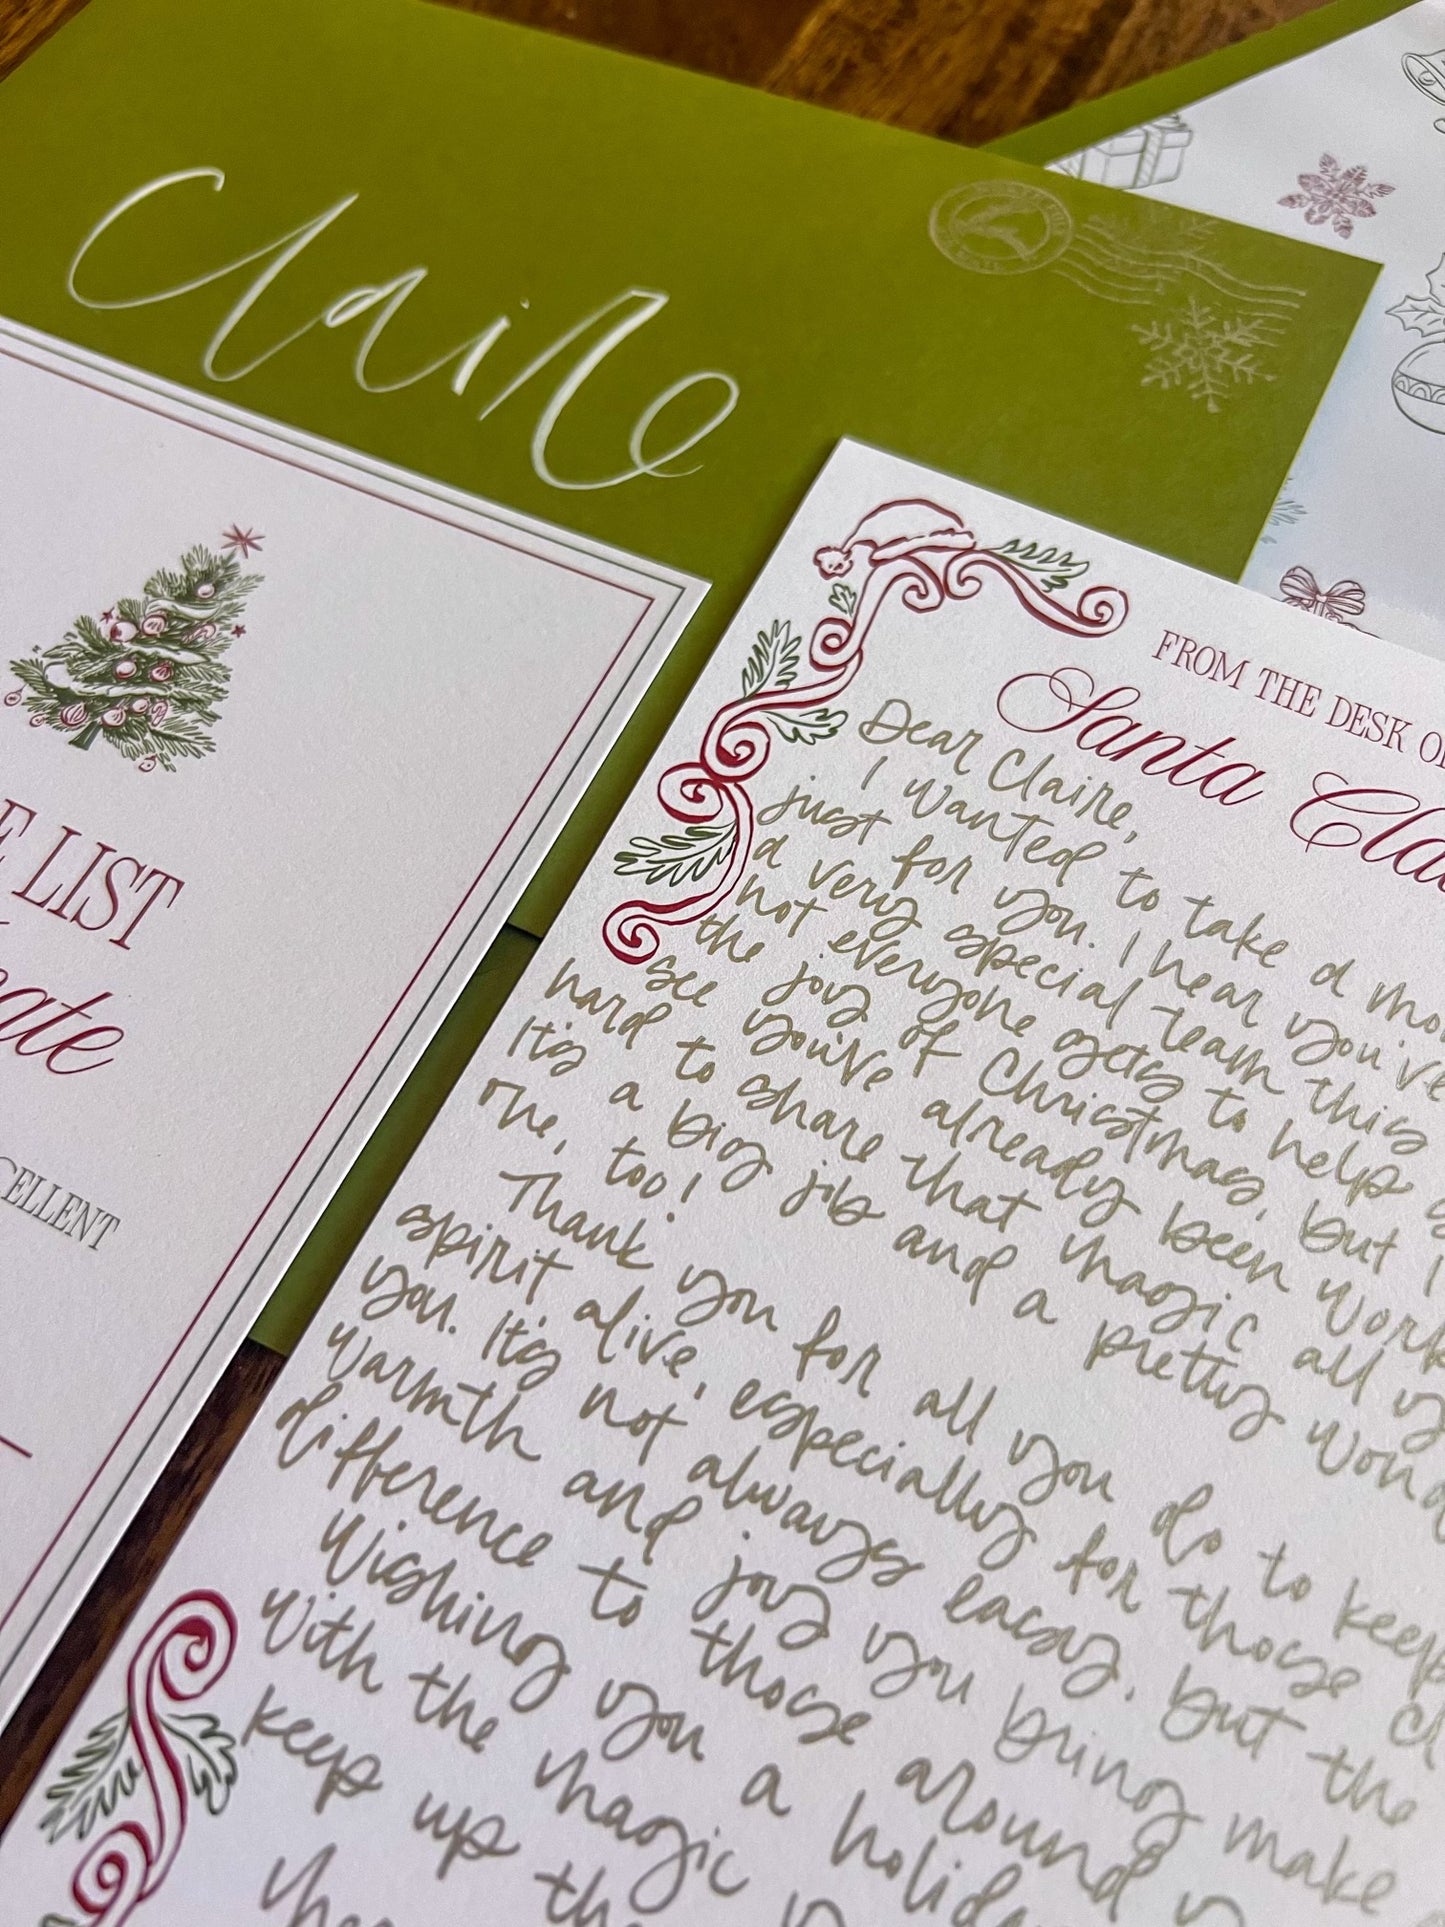 Claire
LIST
CELLENT
FROM THE DESK O
Santa Cla
Dear Claire,
I wanted to take a mo
just for you. I hear you've
a very special team this
not everyone gets to help s
the joy of Christmas, but I
see you've already been work
hard to share that magic all y
It's a big job and a pretty wond
one, too!
Thank you for all you do to keep
spirit alive, especially for those cl
you. It's not always easy, but the
warmth and joy you bring make
difference to those around y
Wishing you a holid
with the magic y
keep up the